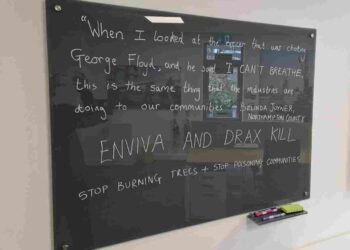 "When I looked at the officer that was choking
George Floyd, and he said I CAN'T BREATHE,
this is the same thing that the industries are
doing to our communities" BELINDA JOYNER,
NORTHAMPTON COUNTY
ENVIVA AND DRAX KILL
STOP BURNING TREES + STOP POISONING COMMUNITIES